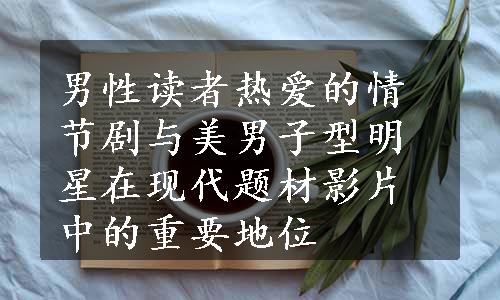 男性读者热爱的情
节剧与美男子型明
星在现代题材影片
中的重要地位